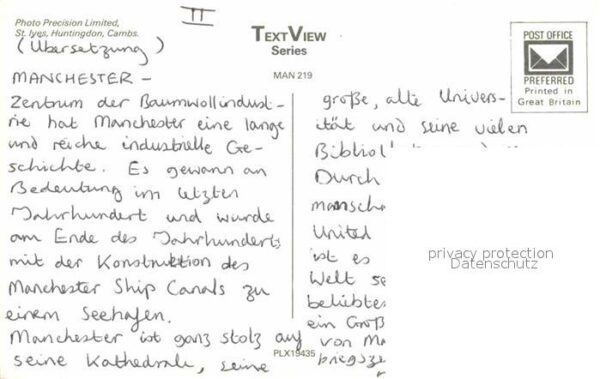 Photo Precision Limited,
St. Ives, Huntingdon, Cambs.
II
TEXTVIEW
Series
MAN 219
POST OFFICE
PREFERRED
Printed in
Great Britain
(Übersetzung)
MANCHESTER -
Zentrum der Baumwollindust-
rie hat Manchester eine lange
und reiche industrielle Ge-
schichte. Es gewann an
Bedeutung im letzten
Jahrhundert und wurde
am Ende des Jahrhunderts
mit der Konstruktion des
Manchester Ship Canals zu
einem Seehafen.
Manchester ist ganz stolz auf
seine Kathedrale, seine
große, alte Univers-
ität und seine vielen
Durch
United
ist es
Welt
beliebtes
ein
von
privacy protection
Datenschutz
PLX19435